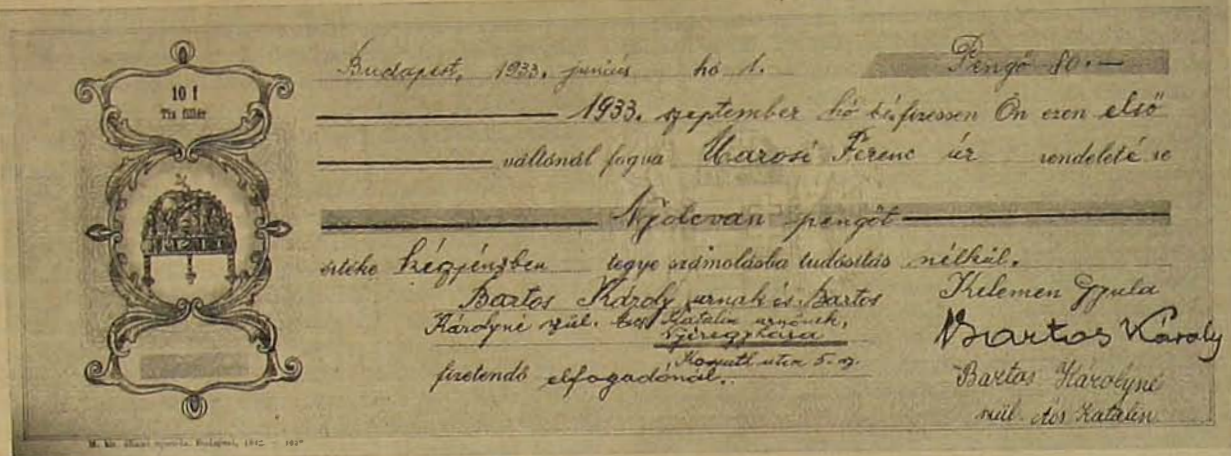 10 f
Tíz fillér
Budapest, 1933. junius hó 1. Pengő 80.—
1933. szeptember hó 1 én fizessen Ön ezen első
váltónál fogva Marosi Ferenc úr rendelete re
Nyolcvan pengőt
értéke készpénzben tegye számolásba tudósítás nélkül.
Bartos Károly urnak és Bartos
Károlyné szül. Katalin urnőnek,
Nyiregyháza
Kossuth utca 5. sz.
fizetendő elfogadónál.
Kelemen Gyula
Bartos Károly
Bartos Károlyné
szül. Katalin
M. kir. állami nyomda, Budapest,